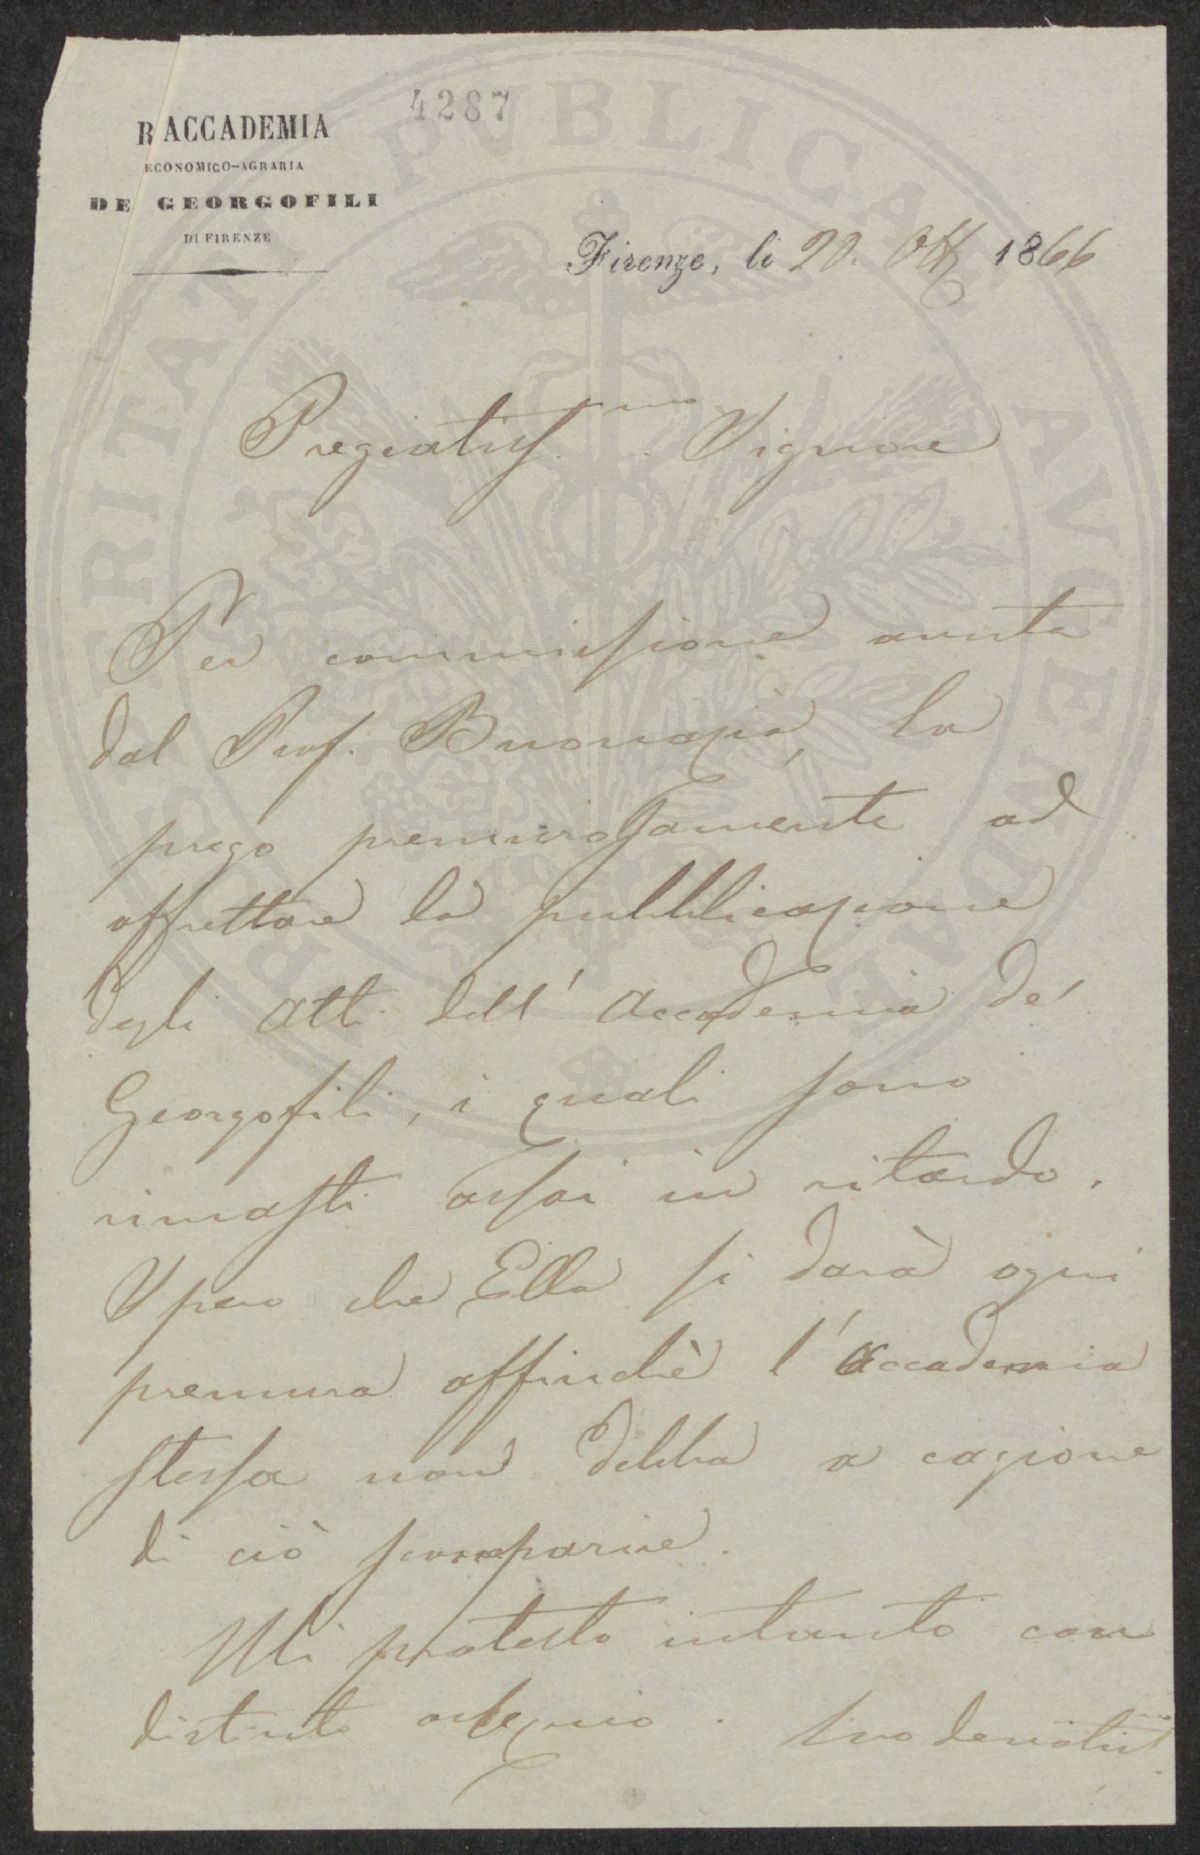 4287
R. ACCADEMIA
ECONOMICO-AGRARIA
DE GEORGOFILI
DI FIRENZE
Firenze, li 20. Ott 1866
Pregiatiss.mo Signore
Per commissione avuta
dal Prof. Buonazia, La
prego premurosamente ad
affrettare la pubblicazione
degli Atti dell' Accademia de'
Georgofili, i quali sono
rimasti assai in ritardo.
Spero che Ella si darà ogni
premura affinchè l'Accademia
stessa non debba a cagione
di ciò scomparire.
Mi protesto intanto con
distinto ossequio. Suo devotiss
PROSPERITATI PVBLICAE AVGENDAE